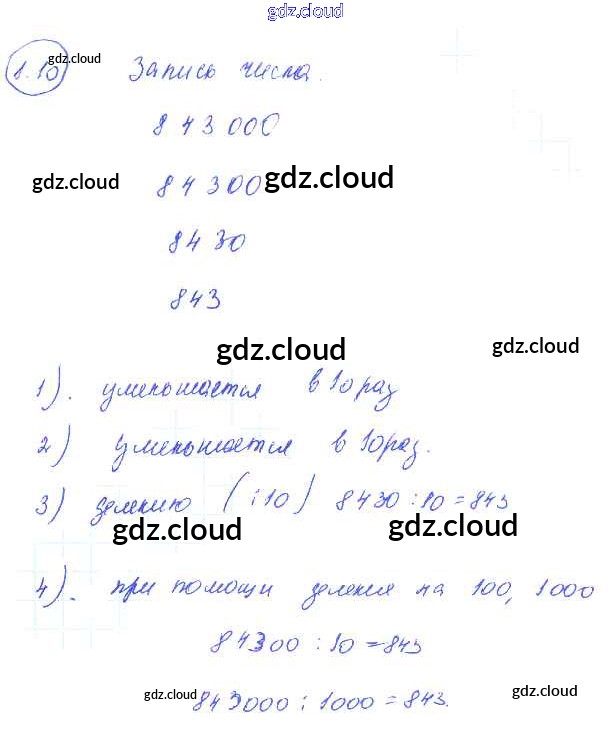 gdz.cloud
1.10 gdz.cloud Запись числа.
843000
gdz.cloud 84300 gdz.cloud
8430
843
gdz.cloud gdz.cloud
1). уменьшается в 10 раз
2) уменьшается в 10 раз.
3) делению (:10) 8430:10=843
gdz.cloud gdz.cloud
4). при помощи деления на 100, 1000
84300:10=843
gdz.cloud 843000:1000=843. gdz.cloud